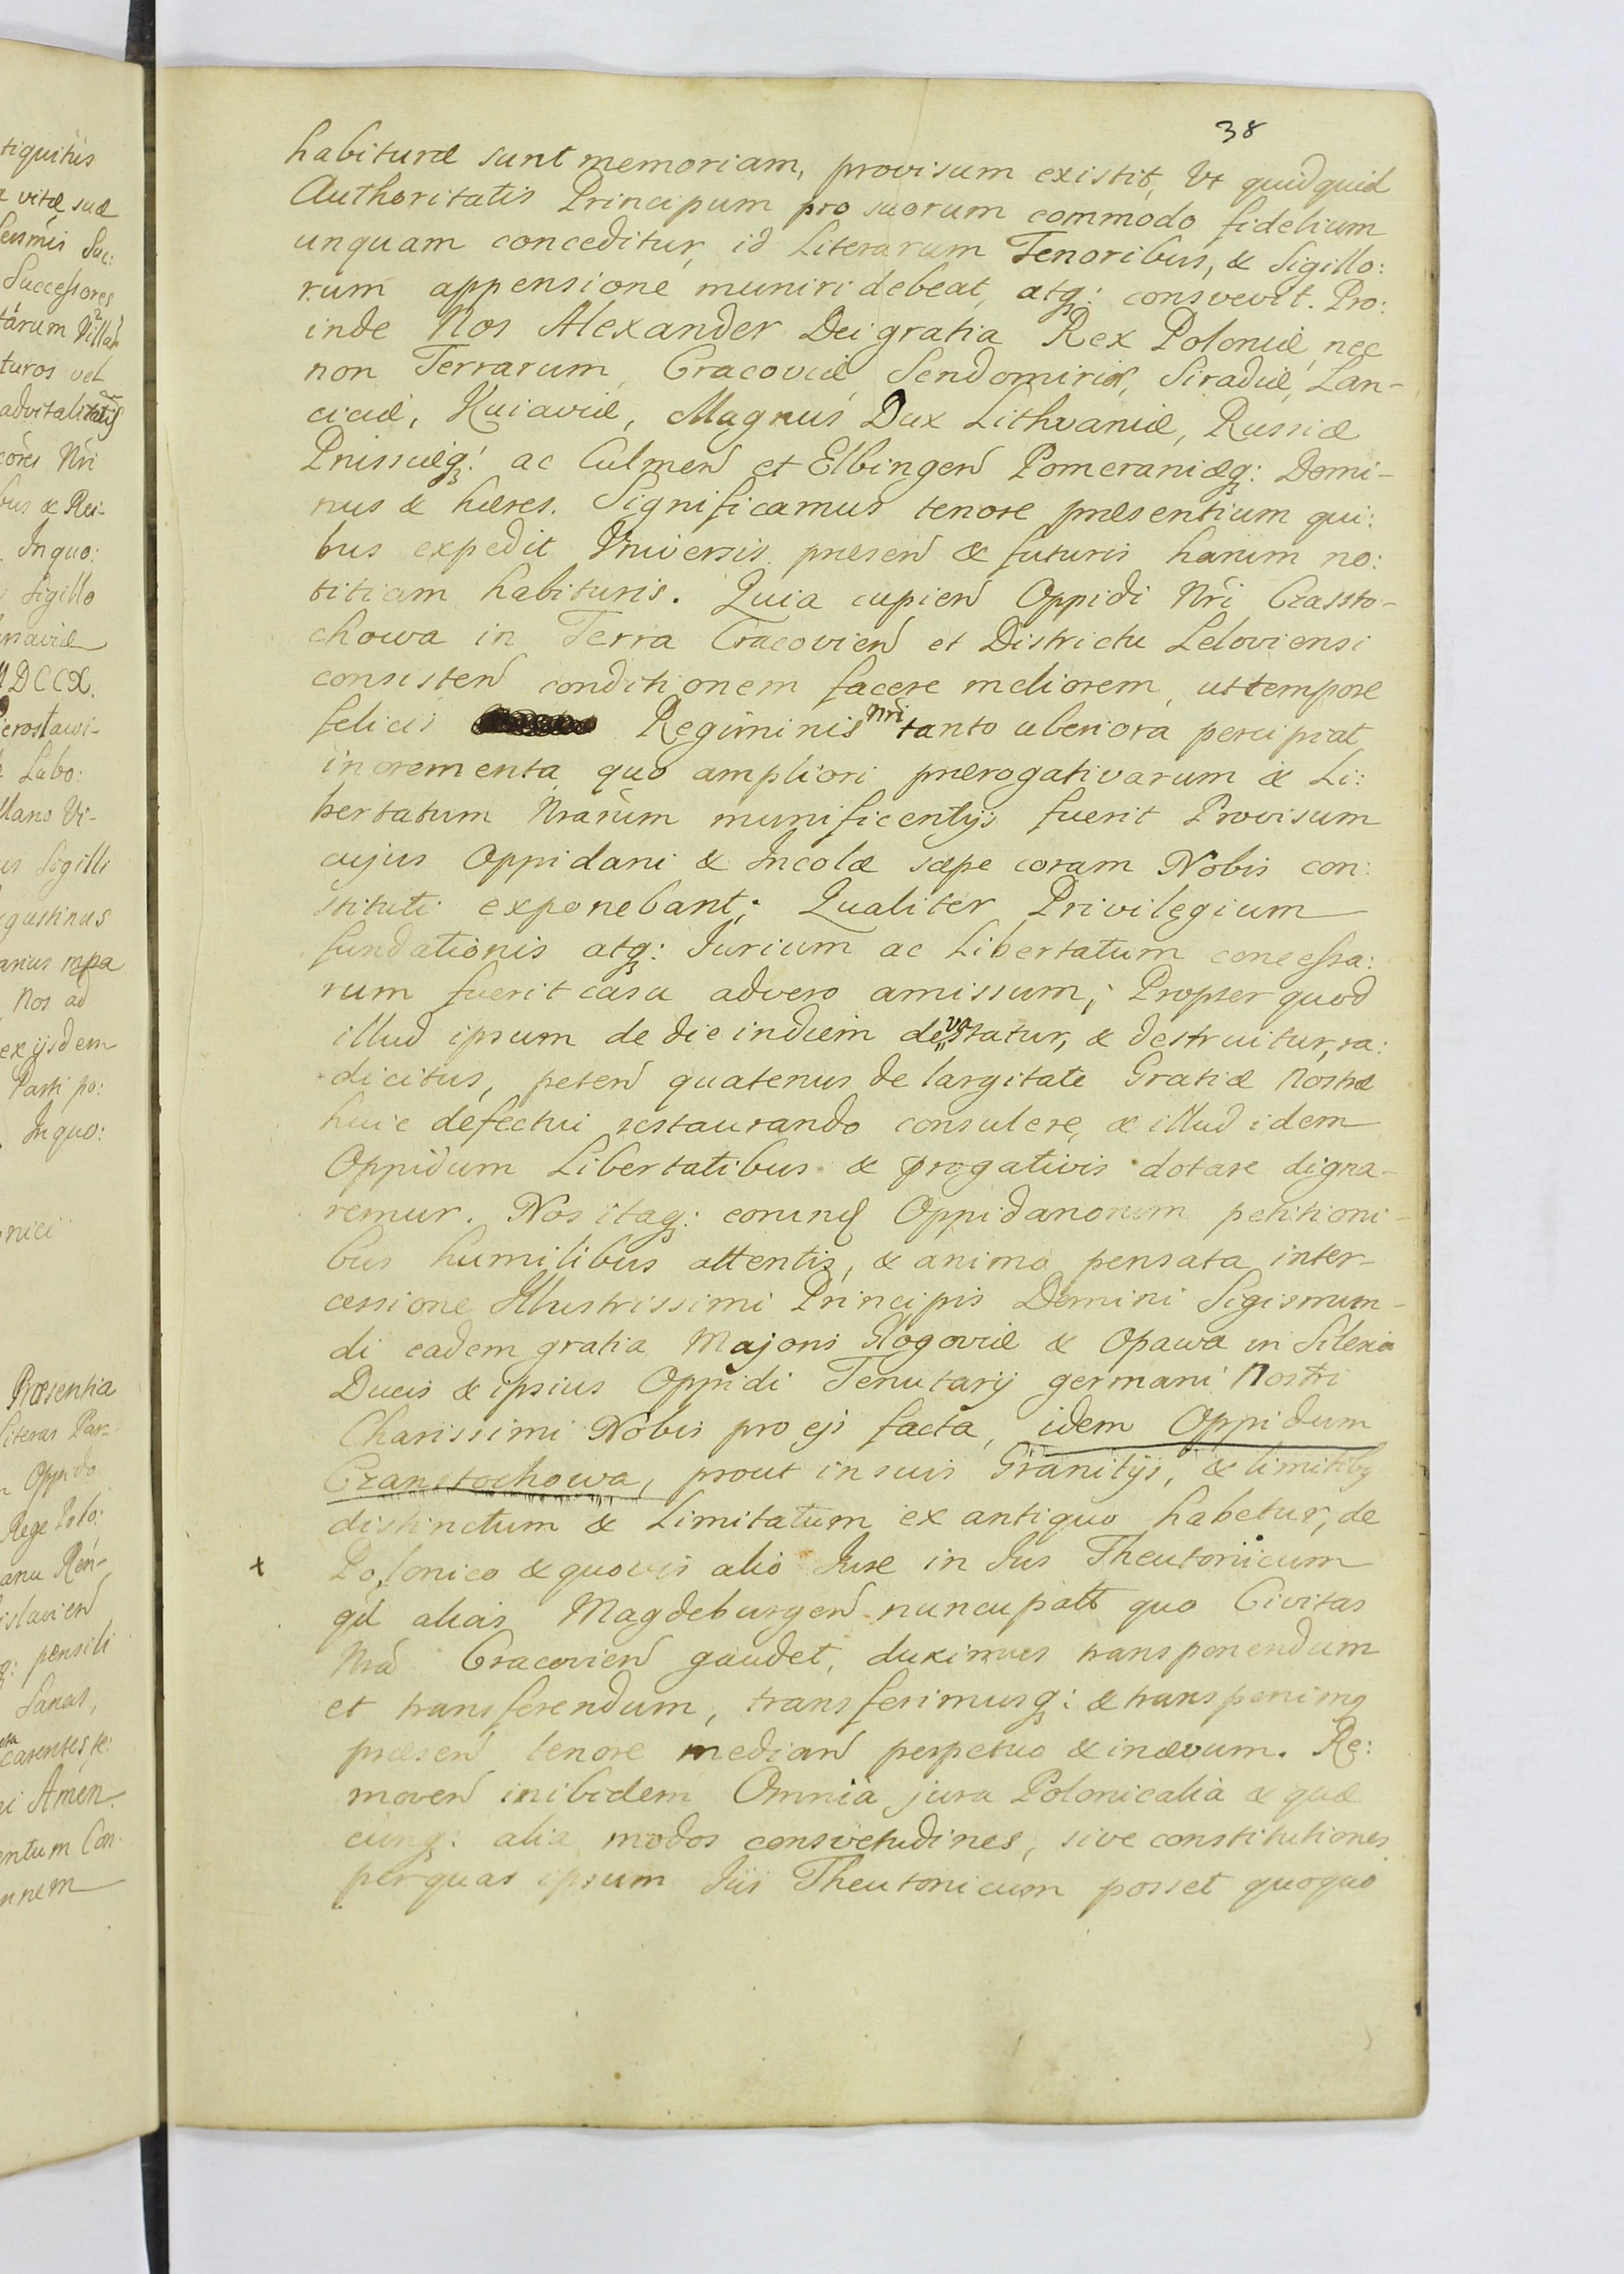 38
habituræ sunt memoriam, provisum existit, Ut quidquid
Authoritatis Principum pro suorum commodo fidelium
unquam conceditur, id Literarum Tenoribus, & Sigillo:
rum appensione muniri debeat, atq: consvevit. Pro:
inde Nos Alexander Dei gratia Rex Poloniæ, nec
non Terrarum, Cracoviæ, Sendomiriæ, Siradiæ, Lan-
ciciæ, Kuiaviæ, Magnus Dux Lithvaniæ, Russiæ
Prussiæq: ac Culmen et Elbingen Pomeraniæq: Domi-
nus & hæres. Significamus tenore præsentium qui:
bus expedit Universis præsen & futuris harum no:
titiam habituris. Quia cupien Oppidi Nri Czassto-
chowa in Terra Cracovien et Districtu Leloviensi
consisten conditionem facere meliorem, ut tempore
felicis Regiminis Nri tanto uberiora percipiat
incrementa, quo ampliori prærogativarum & Li:
bertatum Nrarum munificentijs fuerit Provisum
cujus Oppidani & Incolæ sæpe coram Nobis con:
stituti exponebant; Qualiter Privilegium
fundationis atq: Jurium ac Libertatum concessa:
rum fuerit casu advero amissum; Propter quod
illud ipsum de die indiem devastatur, & destruitur, ra:
dicitus, peten quatenus de largitate Gratiæ Nostræ
huic defectui restaurando consulere, & illud idem
Oppidum Libertatibus & progativis dotare digna-
remur. Nos itaq: eorund Oppidanorum petitioni-
bus humilibus attentis, & animo pensata inter-
cessione Illustrissimi Principis Domini Sigismun-
di eadem gratia Majoris Glogoviæ & Opawa in Silesia
Ducis & ipsius Oppidi Tenutarij germani Nostri
Charissimi Nobis pro ejs facta, idem Oppidum
Czanstochowa, prout in suis Granitijs, & limitibq
distinctum & Limitatum ex antiquo habetur, de
x Polonico & quovis alio Jure in Jus Theutonicum
qd alias Magdeburgen nuncupatt quo Civitas
Nra Cracovien gaudet, duximus transponendum
et transferendum, transferimusq: & transponimq
præsen tenore median perpetuo & inævum. Re:
moven inibidem Omnia jura Polonicalia & quæ
cunq: alia modos consvetudines, sive constitutiones
per quas ipsum Jus Theutonicum posset quoquo